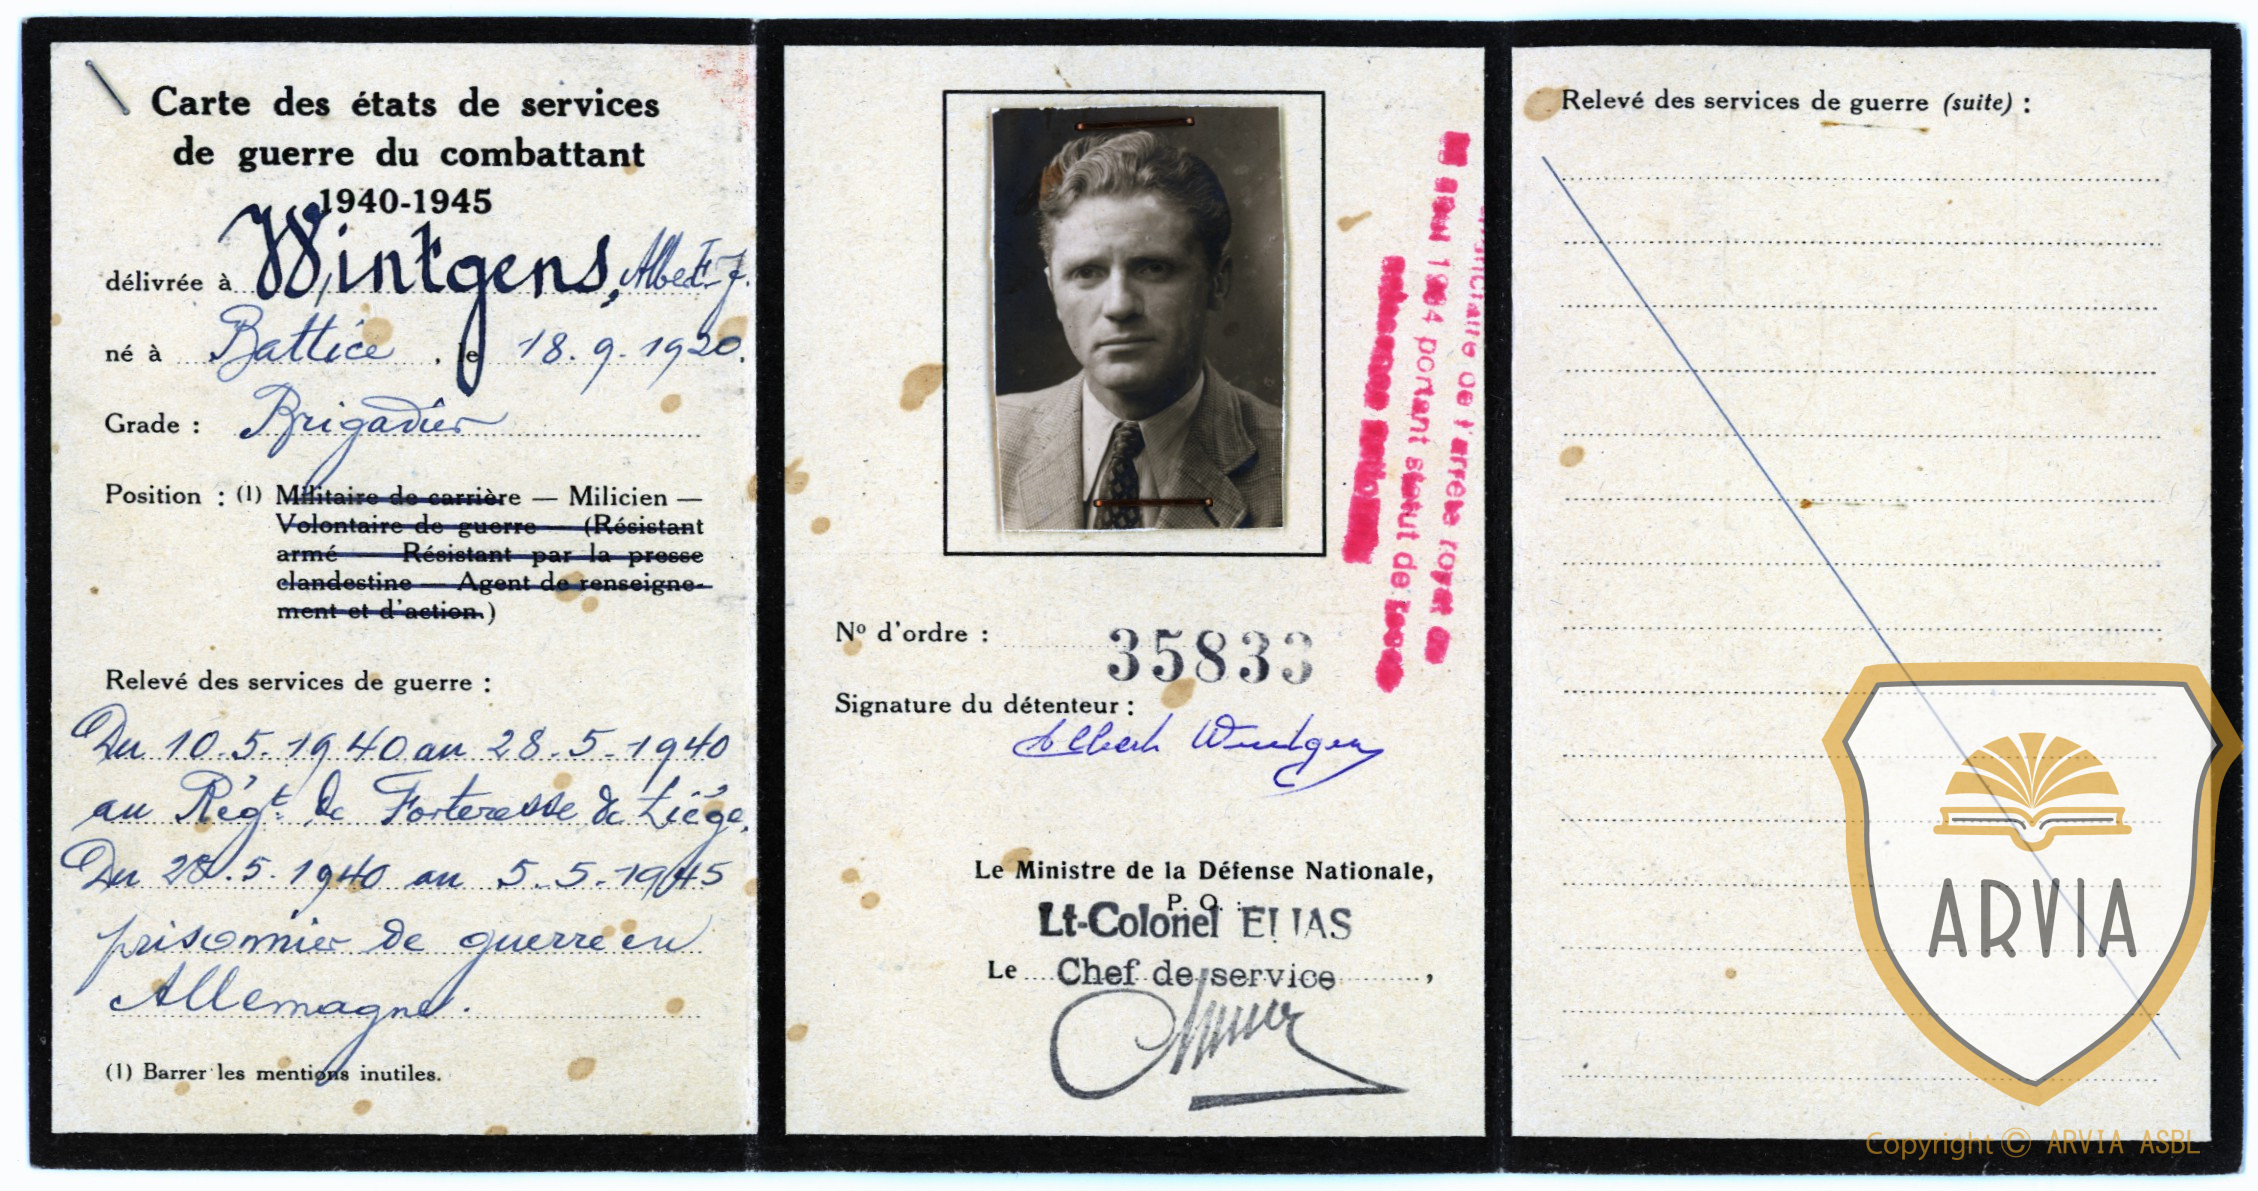 Carte des états de services
de guerre du combattant
1940-1945
délivrée à Wintgens, Albert-J.
né à Battice, le 18.9.1920.
Grade : Brigadier
Position : (1) Militaire de carrière — Milicien —
Volontaire de guerre — (Résistant
armé — Résistant par la presse
clandestine — Agent de renseigne-
ment et d'action.)
Relevé des services de guerre :
Du 10.5.1940 au 28.5.1940
au Régt. de Forteresse de Liége.
Du 28.5.1940 au 5.5.1945
prisonnier de guerre en
Allemagne.
(1) Barrer les mentions inutiles.
de l'arrêté royal
portant statut de
No d'ordre : 35833
Signature du détenteur :
Albert Wintgens
Le Ministre de la Défense Nationale,
P. O. :
Lt-Colonel ELIAS
Le Chef de service,
Relevé des services de guerre (suite) :
ARVIA
Copyright © ARVIA ASBL